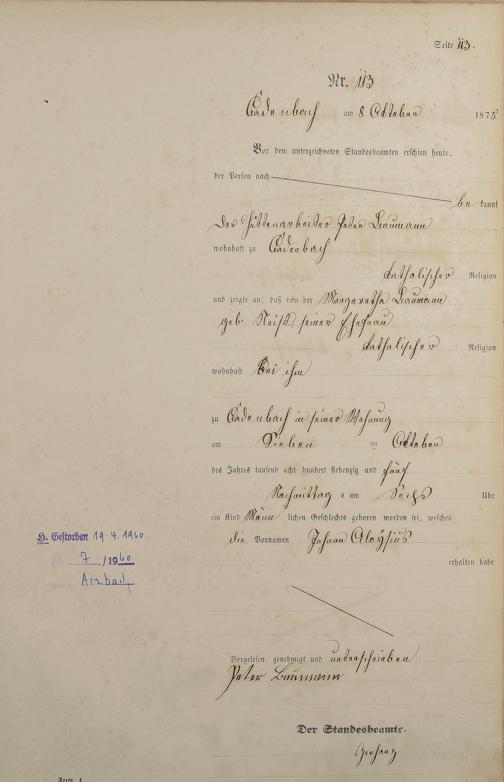 Seite 113.
Nr. 113
Cadenbach am 8 Oktober 1875
Vor dem unterzeichneten Standesbeamten erschien heute,
der Person nach
be kannt
Der Hüttenarbeiter Peter Baumann
wohnhaft zu Cadenbach
katholischer Religion
und zeigte an, daß von der Margaretha Baumann
geb. seiner Ehefrau
katholischer Religion
wohnhaft bei ihm
zu Cadenbach in seiner Wohnung
am Sieben ten Oktober
des Jahres tausend acht hundert siebenzig und fünf
Nachmittag s um Sechs Uhr
ein Kind Männ lichen Geschlechts geboren worden sei, welches
die Vornamen Johann Aloysius
erhalten habe
H. Gestorben 19.4.1960
7 /1960
Arzbach
Vorgelesen, genehmigt und unterschrieben
Peter Baumann
Der Standesbeamte.